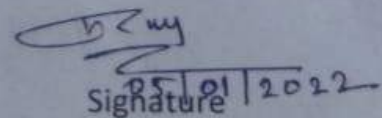 05/01/2022
Signature